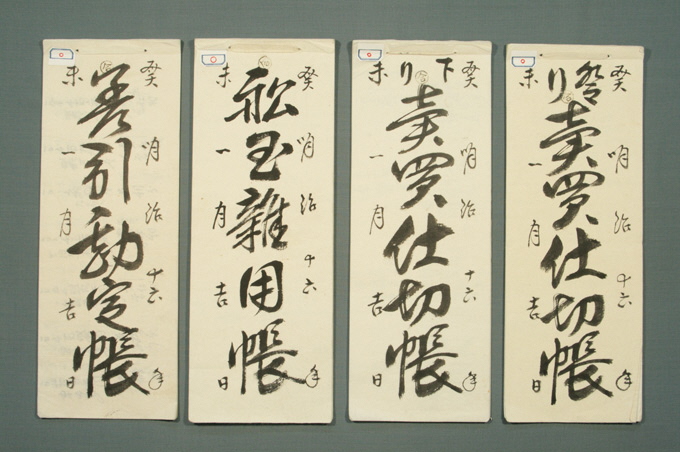 癸明治十六年
登り賣買仕切帳
未一月吉日
癸明治十六年
下り賣買仕切帳
未一月吉日
癸明治十六年
雜用帳
未一月吉日
癸明治十六年
差引勘定帳
未一月吉日